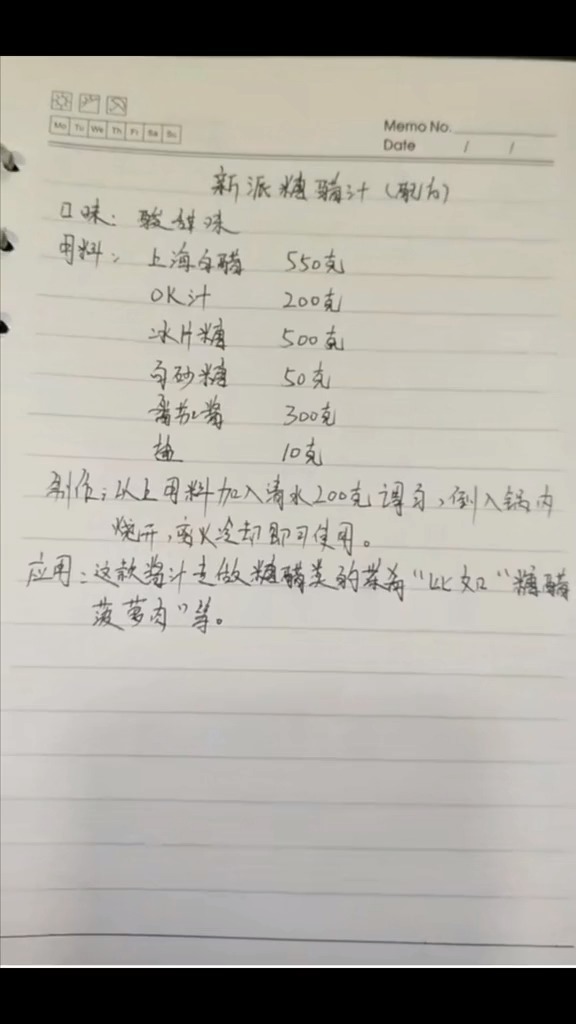 Mo Tu We Th Fr Sa Su
Memo No.
Date / /
新派糖醋汁（配方）
口味：酸甜味
用料：上海白醋 550克
OK汁 200克
冰片糖 500克
白砂糖 50克
番茄酱 300克
盐 10克
制作：以上用料加入清水200克调匀，倒入锅内
烧开，离火冷却即可使用。
应用：这款酱汁主做糖醋类的菜肴“比如“糖醋
菠萝肉”等。